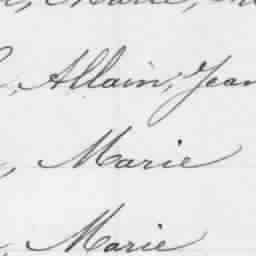 Marie,
, Allain, Jean
, Marie
, Marie